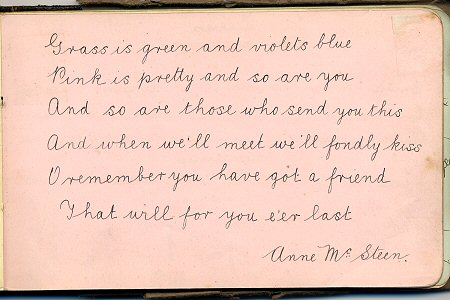 Grass is green and violets blue
Pink is pretty and so are you
And so are those who send you this
And when we'll meet we'll fondly kiss
O remember you have got a friend
That will for you e'er last
Anne Mc Steen.